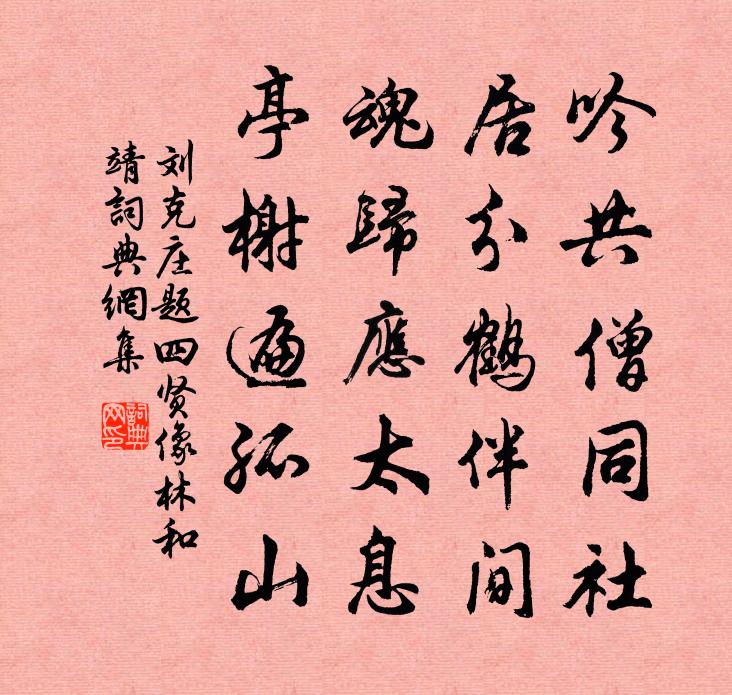 吟共僧同社
居分鹤伴间
魂歸應太息
亭榭遍孤山
刘克庄题四贤像林和
靖詞典網集
詞典网印